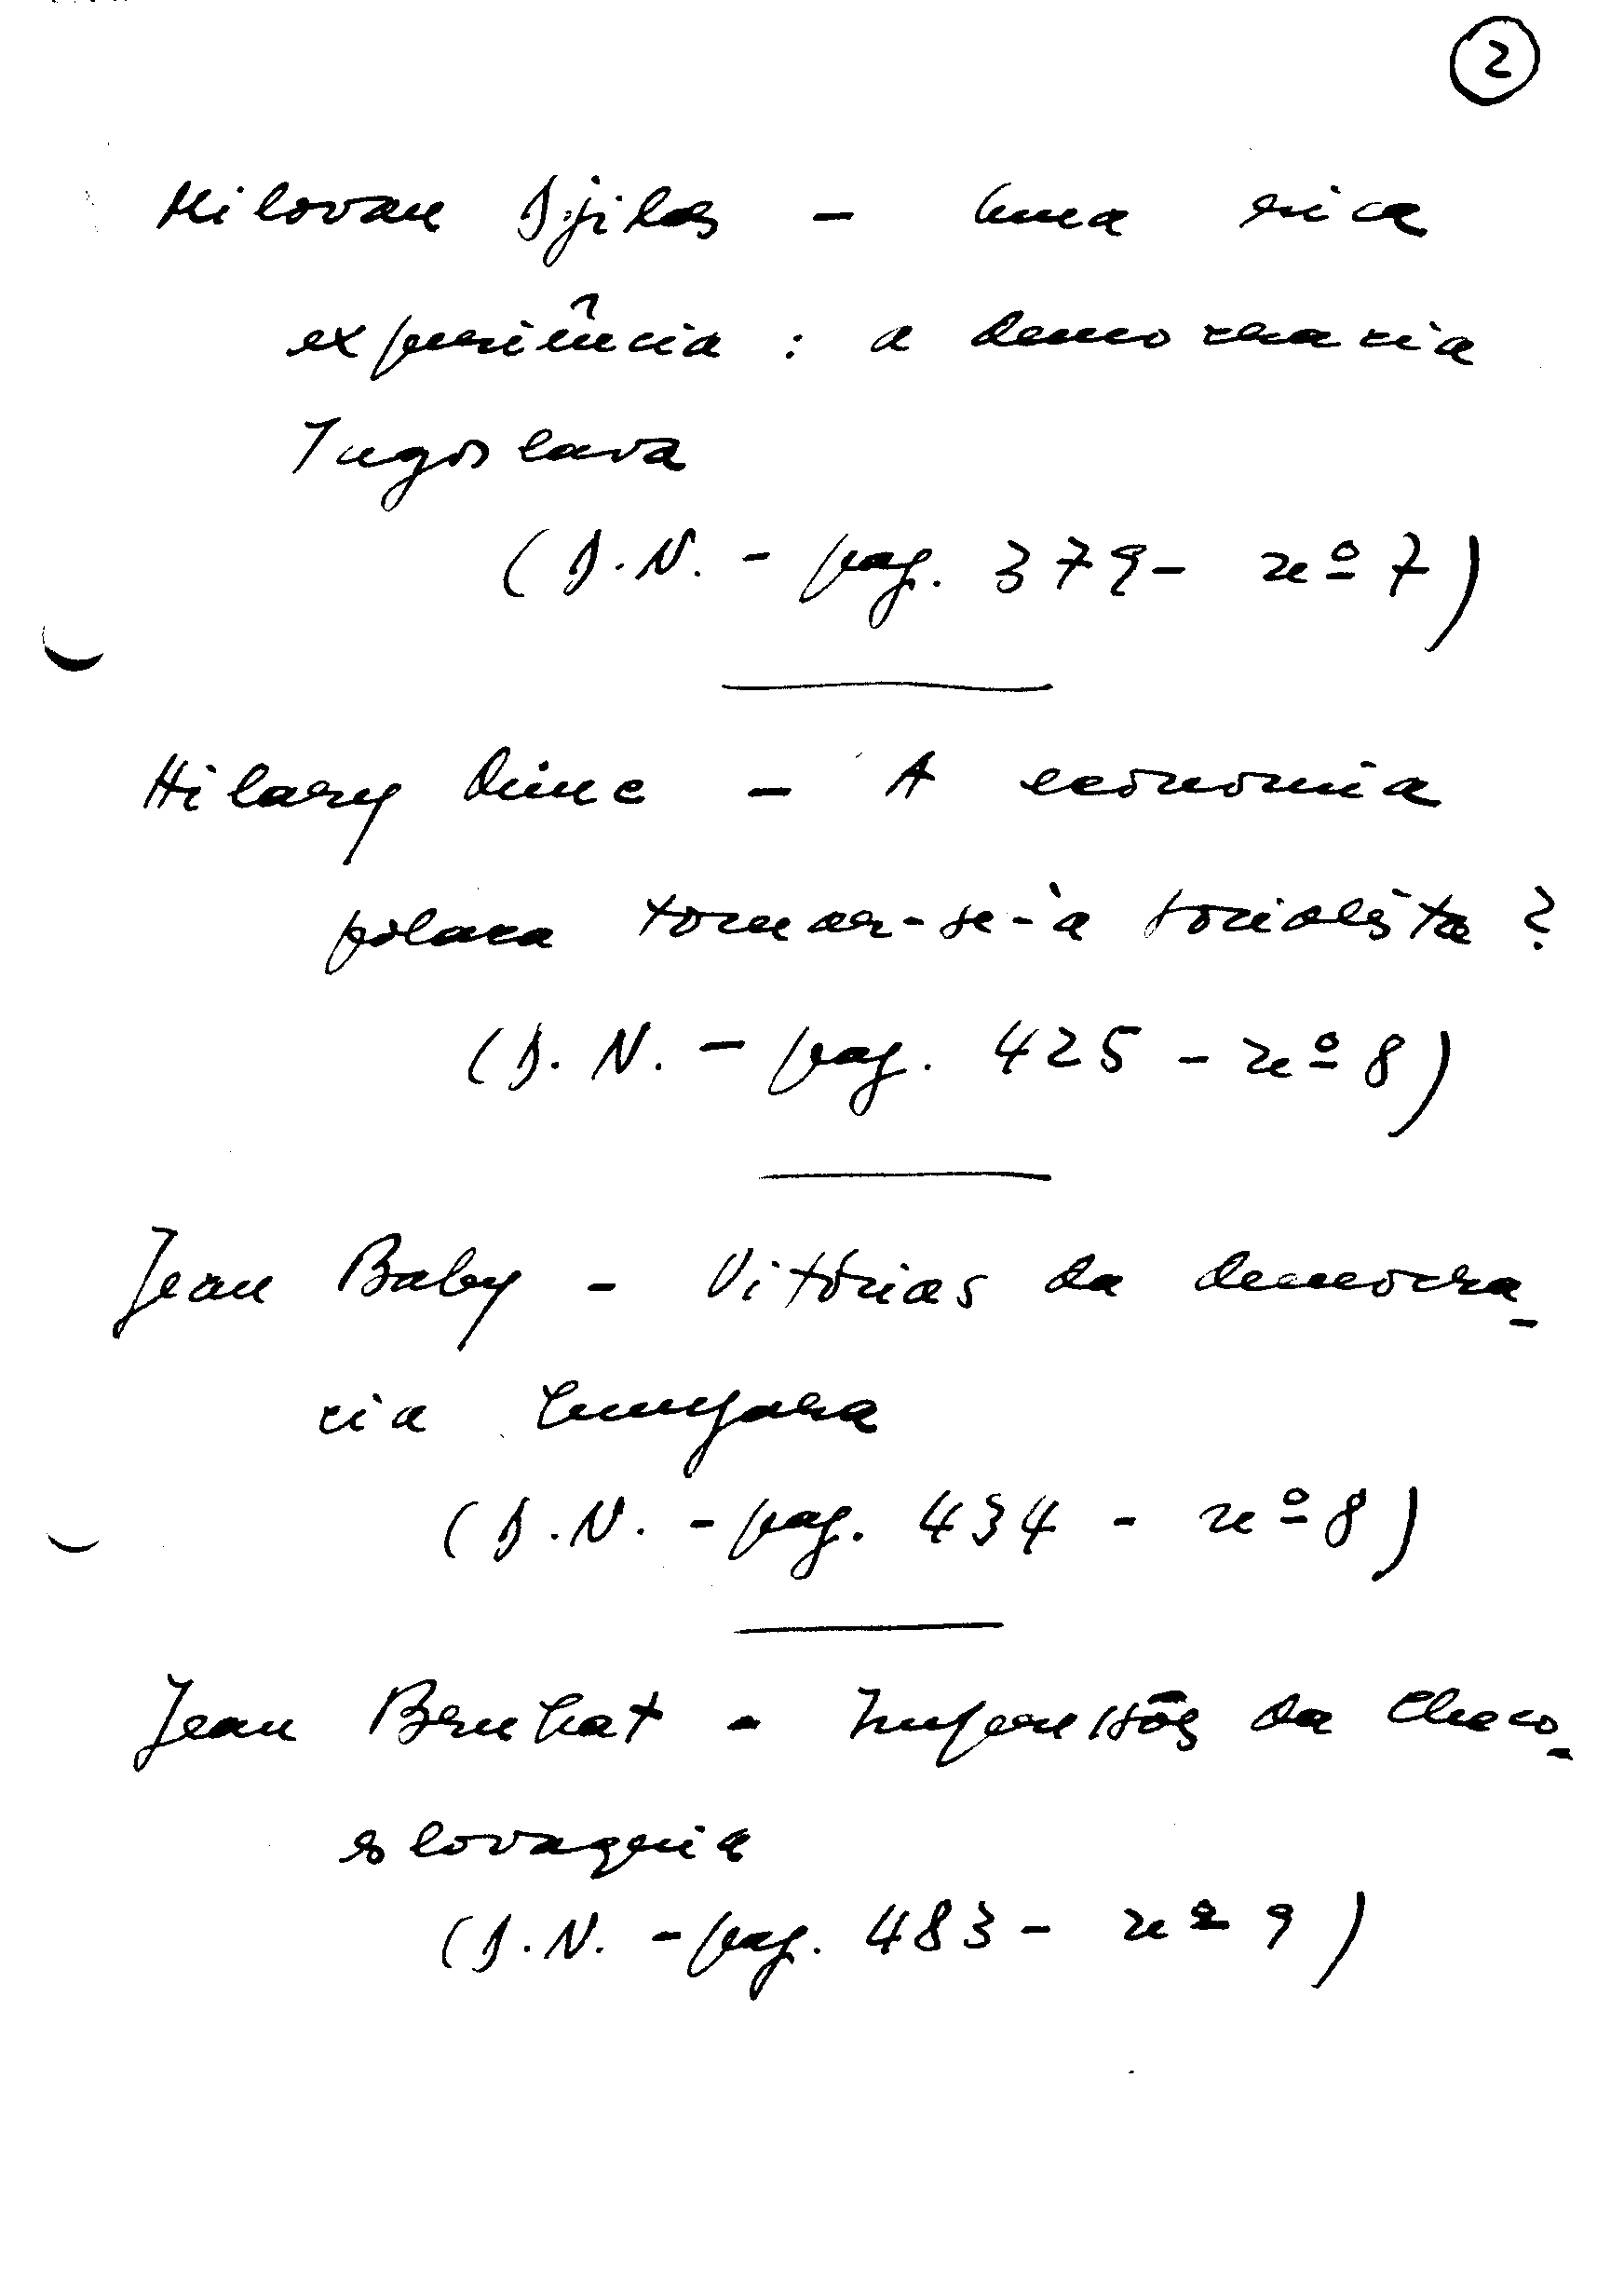 2
Milovan Djilas - Uma rica
experiência : a democracia
Jugoslava
(D.N. - pag. 379 - nº 7)
Hilary Minc - A economia
polaca tornar-se-à socialista ?
(D.N. - pag. 425 - nº 8)
Jean Baby - Vitórias da democra-
cia hungara
(D.N. - pag. 434 - nº 8)
Jean Bruhat - Impressões da Checo-
eslovaquia
(D.N. - pag. 483 - nº 9)